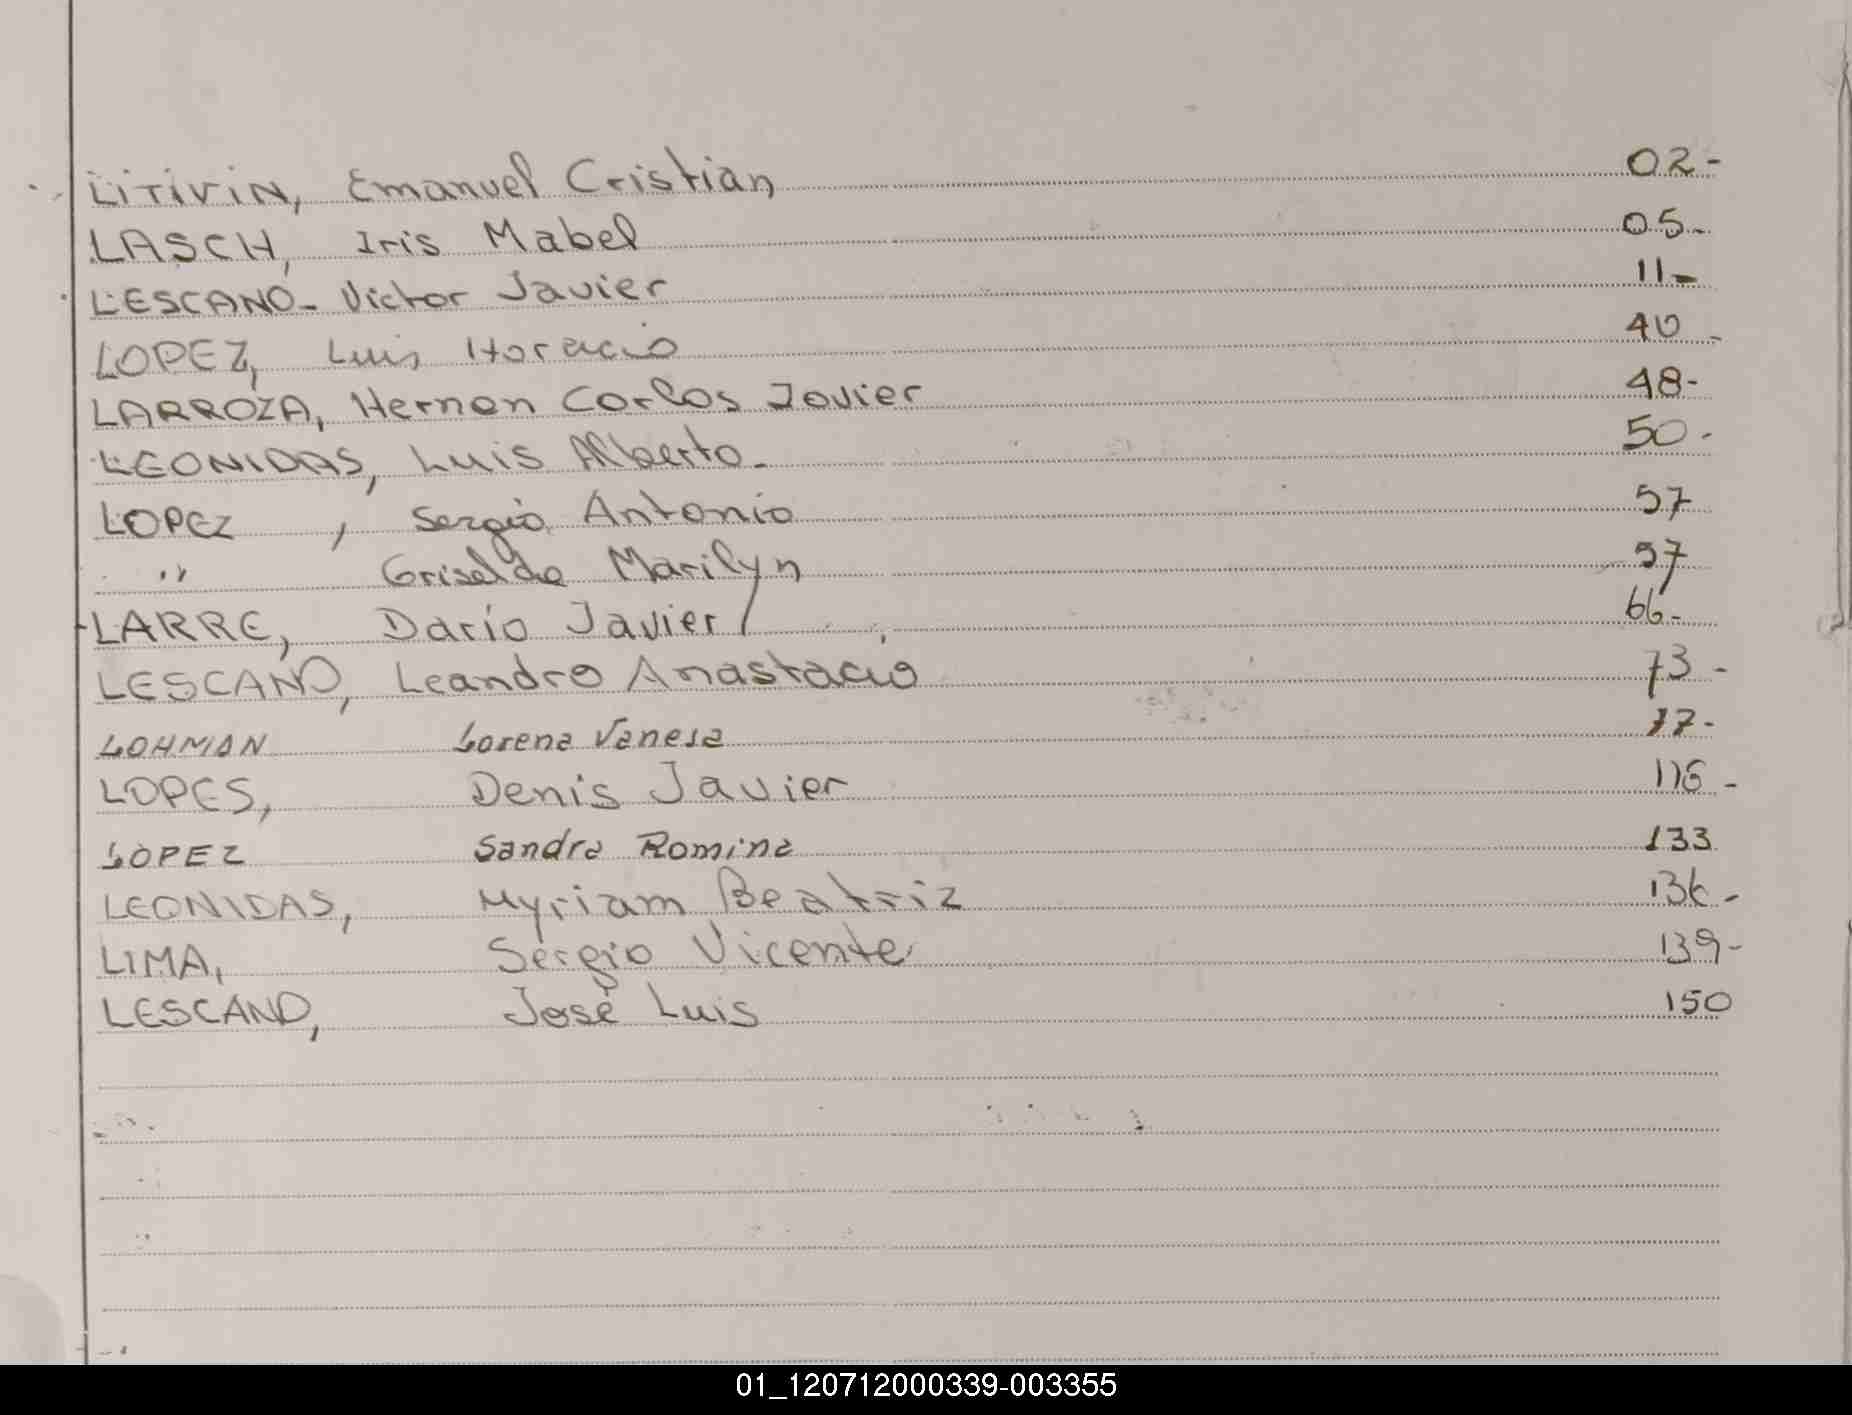 LITIVIN, Emanuel Cristian 02-
LASCH, Iris Mabel 05-
LESCANO- Victor Javier 11-
LOPEZ, Luis Horacio 40-
LARROZA, Hernan Carlos Javier 48-
LEONIDAS, Luis Alberto- 50-
LOPEZ , Sergio Antonio 57
" Griselda Marilyn 57
LARRE, Darío Javier 66-
LESCANO, Leandro Anastacio 73-
LOHMAN Lorena Vanesa 77-
LOPES, Denis Javier 116-
LOPEZ Sandra Romina 133
LEONIDAS, Myriam Beatriz 136-
LIMA, Sergio Vicente 139-
LESCANO, José Luis 150
01_120712000339-003355